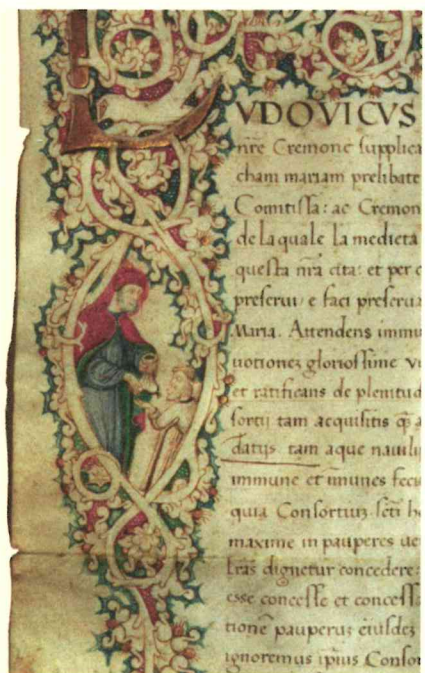 LUDOVICUS
nr̃e Cremone supplica
cham mariam prelibate
Comitissa: ac Cremon
de la quale la medieta
questa nr̃a cita: et per c
preserui e faci preserua
Maria. Attendens immu
uotionez gloriosime vi
et ratificans de plenitud
sortij tam acquisitis q̃ a
datijs tam aque nauili
immune et im̃unes fec
quia Consortiuz sc̃ti
maxime in pauperes
lr̃as dignetur concedere:
esse concesse et concess
tione pauperuz eiusdez
ignoremus ip̃ius Consor